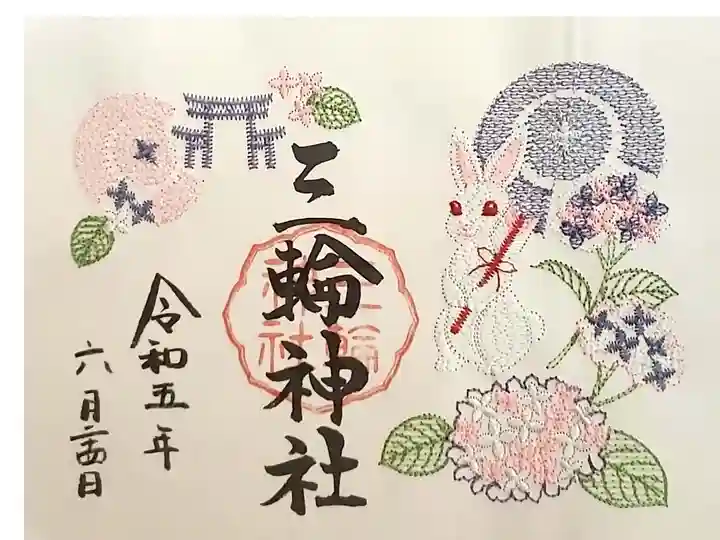 三輪神社
三輪
神社
令和五年
六月二十四日